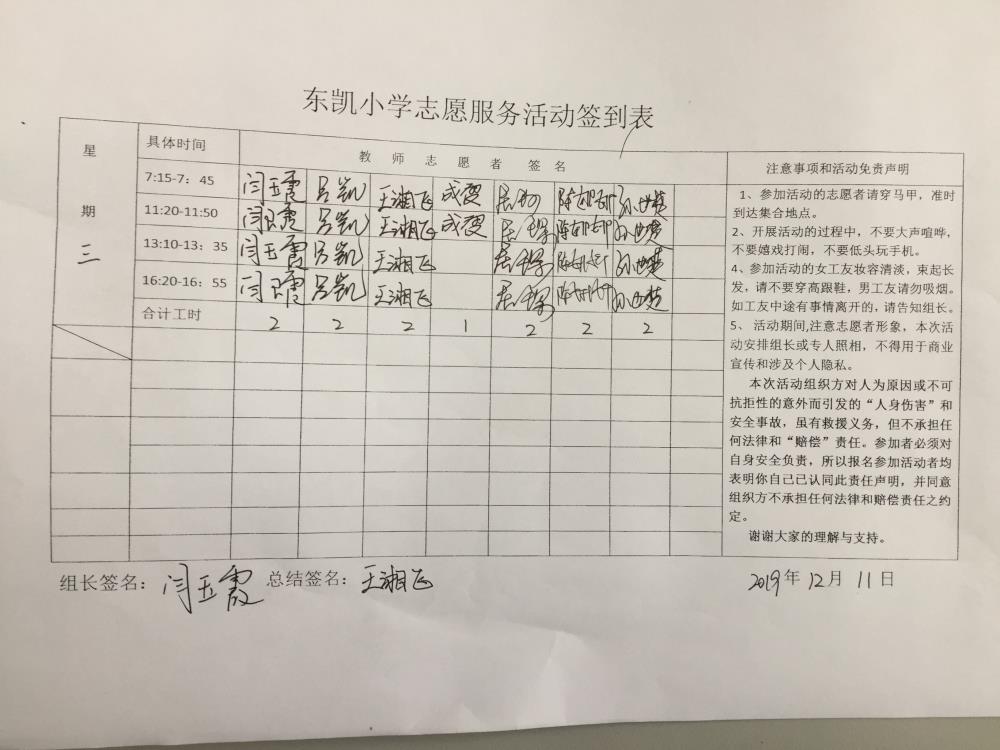 东凯小学志愿服务活动签到表
星期三
具体时间
教师志愿者签名
7:15-7：45 闫玉霞 吕凯 王湘飞 成霞
11:20-11:50 闫玉霞 吕凯 王湘飞 成霞
13:10-13：35 闫玉霞 吕凯 王湘飞
16:20-16：55 闫玉霞 吕凯 王湘飞
合计工时 2 2 2 1 2 2 2
注意事项和活动免责声明
1、参加活动的志愿者请穿马甲，准时
到达集合地点。
2、开展活动的过程中，不要大声喧哗，
不要嬉戏打闹，不要低头玩手机。
4、参加活动的女工友妆容清淡，束起长
发，请不要穿高跟鞋，男工友请勿吸烟。
如工友中途有事情离开的，请告知组长。
5、 活动期间,注意志愿者形象，本次活
动安排组长或专人照相，不得用于商业
宣传和涉及个人隐私。
本次活动组织方对人为原因或不可
抗拒性的意外而引发的“人身伤害”和
安全事故，虽有救援义务，但不承担任
何法律和“赔偿”责任。参加者必须对
自身安全负责，所以报名参加活动者均
表明你自己已认同此责任声明，并同意
组织方不承担任何法律和赔偿责任之约
定。
谢谢大家的理解与支持。
组长签名：闫玉霞 总结签名：王湘飞
2019年 12月 11日